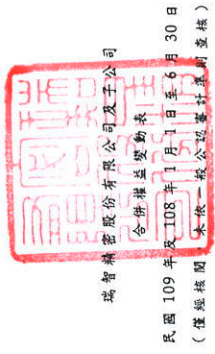 瑞智精密股份有限公司及子公司
合併權益變動表
民國 109 年及 108 年 1 月 1 日至 6 月 30 日
(僅經核閱,未依一般公認審計準則查核)